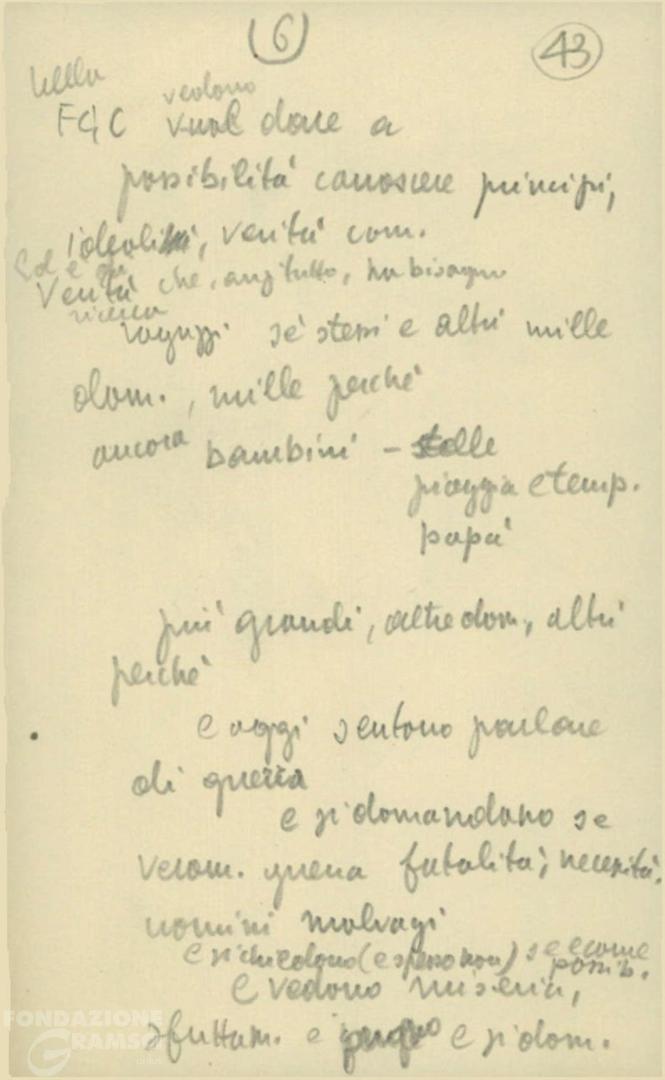 (6)
43
nella
vedono
FGC vuol dare a
possibilità conoscere principi,
ideali, verità com.
Ed è
verità che, anzitutto, ha bisogno
ricerca
ragazzi sé stessi e altri mille
dom., mille perché
ancora bambini – stelle
pioggia e temp.
papà
più grandi, altre dom., altri
perché
e oggi sentono parlare
di guerra
e si domandano se
veram. guerra fatalità, necessità,
uomini malvagi
e si chiedono (e spesso non) se e come
possib.
e vedono miseria,
sfruttam. e e si dom.
FONDAZIONE
GRAMSCI